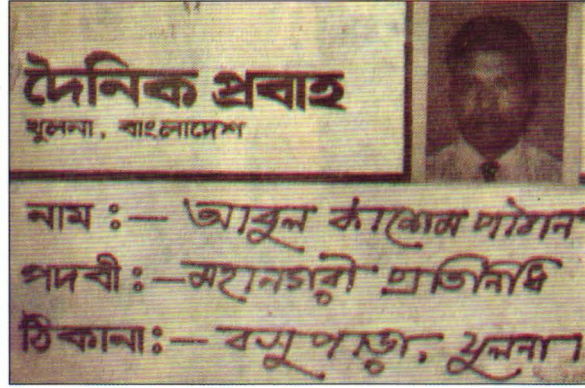 দৈনিক প্রবাহ
খুলনা, বাংলাদেশ
নাম ঃ— আবুল কাশেম পাঠান
পদবী ঃ—মহানগরী প্রতিনিধি
ঠিকানা ঃ— বসুপাড়া, খুলনা।